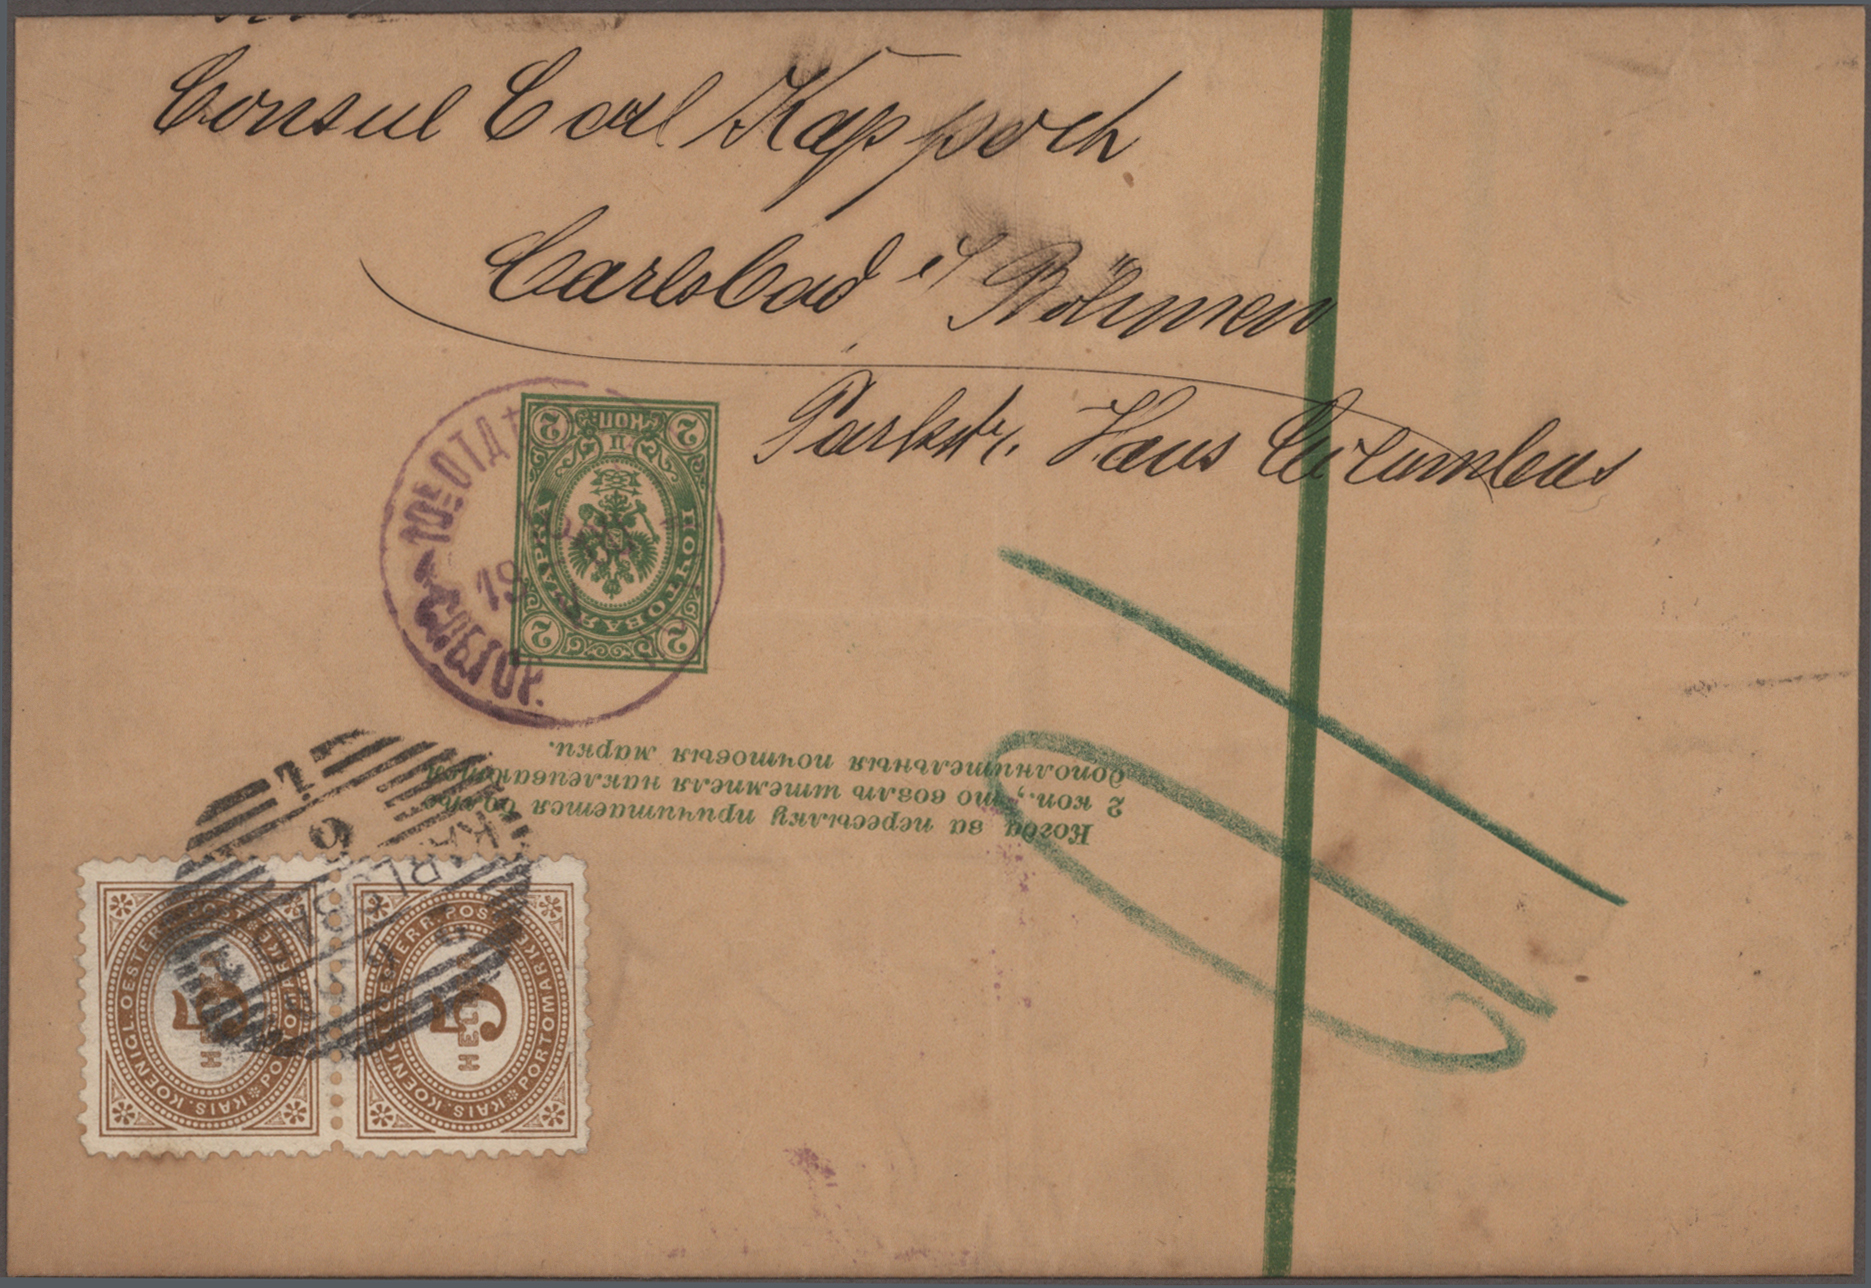 Consul Carl Kappoch
Carlsbad i/ Böhmen
Parkstr. Haus Columbus
2 КОП 2
ПОЧТОВАЯ МАРКА
2 2
10е ОТД
19
С.ПБ.ГОР.
Когда за пересылку причитается более
2 коп., то возлѣ штемпеля наклеиваются
дополнительныя почтовыя марки.
KARLSBAD
KAIS. KOENIGL. OESTERR. POST PORTOMARKE
5
HELLER
KAIS. KOENIGL. OESTERR. POST PORTOMARKE
5
HELLER